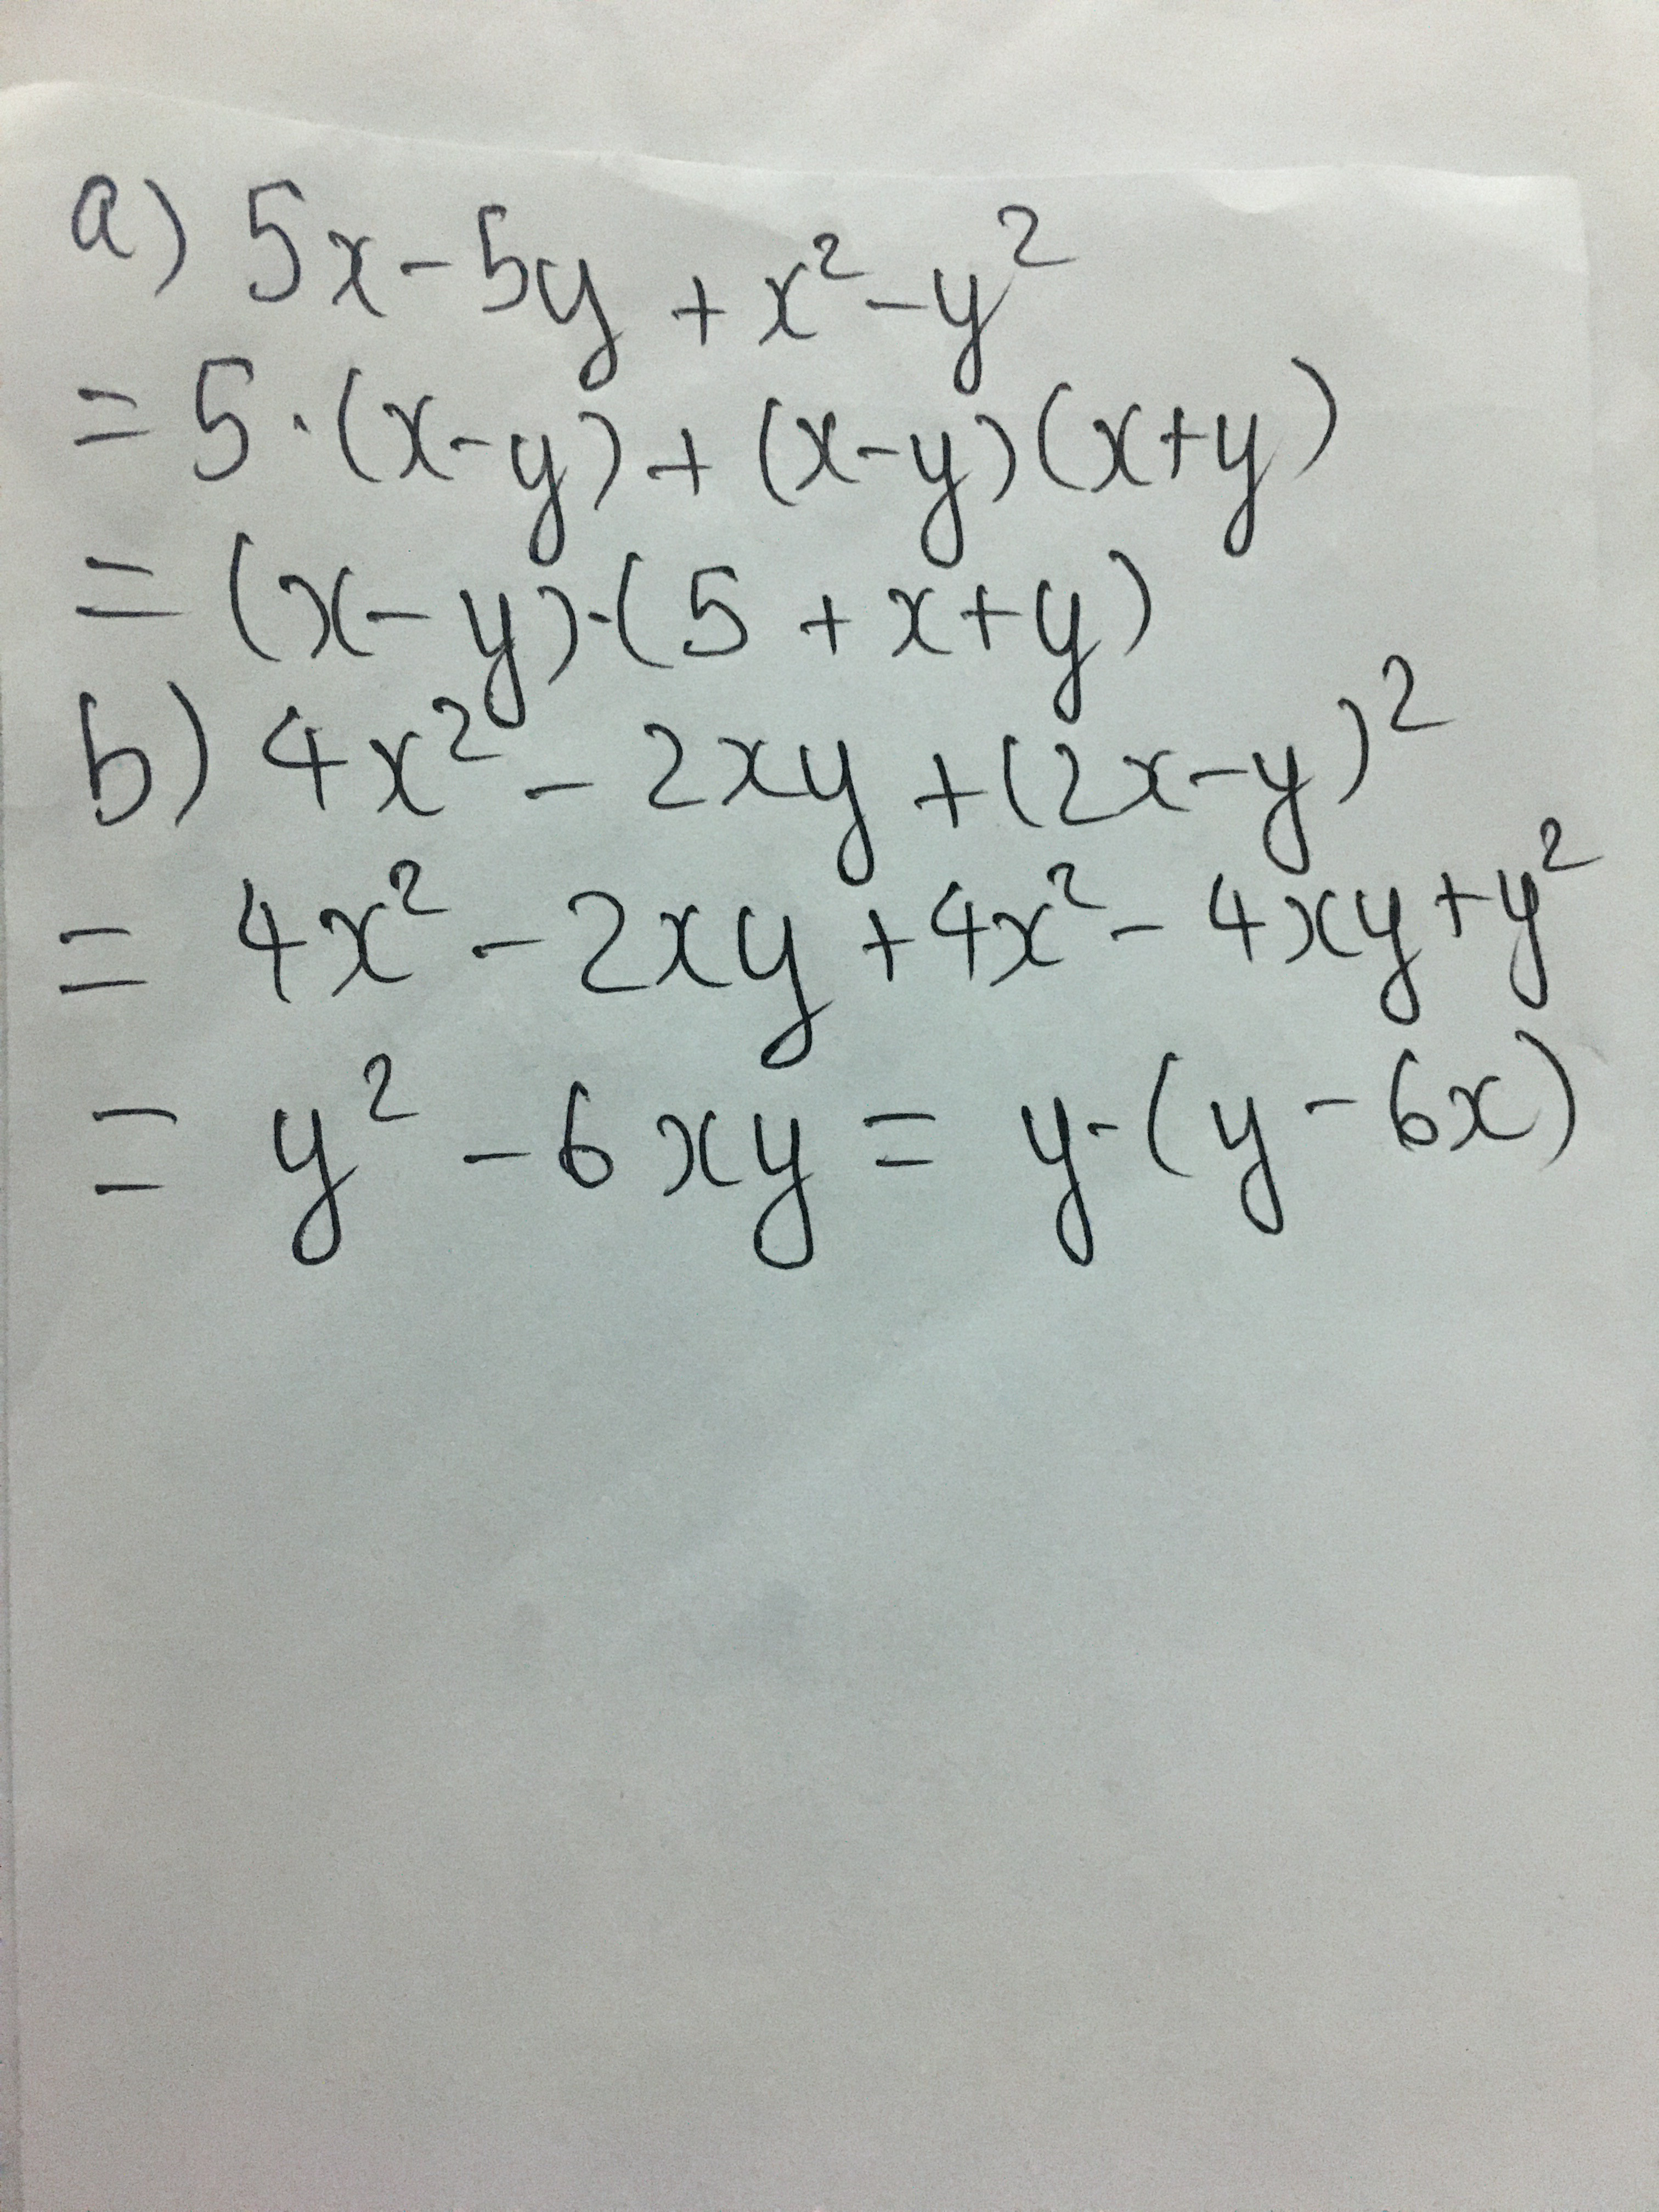 a) 5x - 5y + x² - y²
= 5 · (x - y) + (x - y)(x + y)
= (x - y) · (5 + x + y)
b) 4x² - 2xy + (2x - y)²
= 4x² - 2xy + 4x² - 4xy + y²
= y² - 6xy = y · (y - 6x)